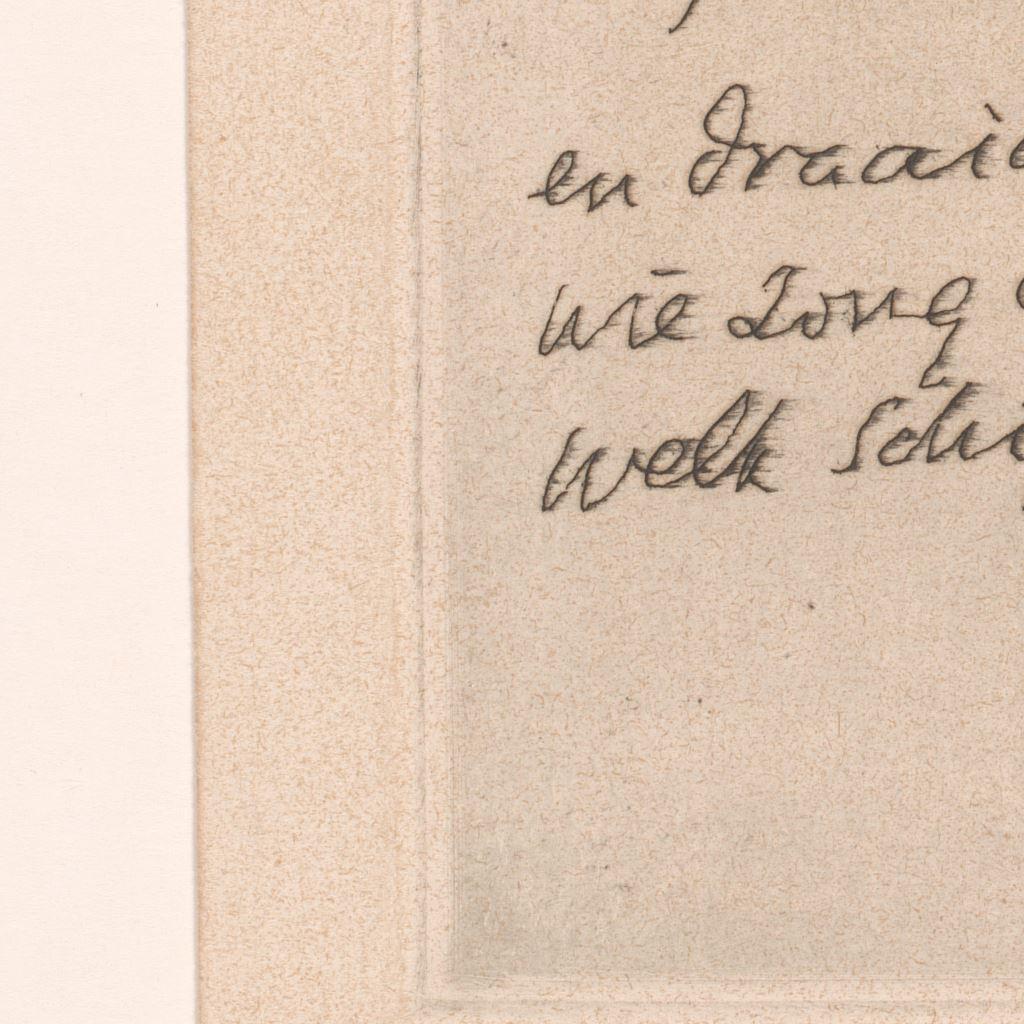 en draai
wie zong
welk schi